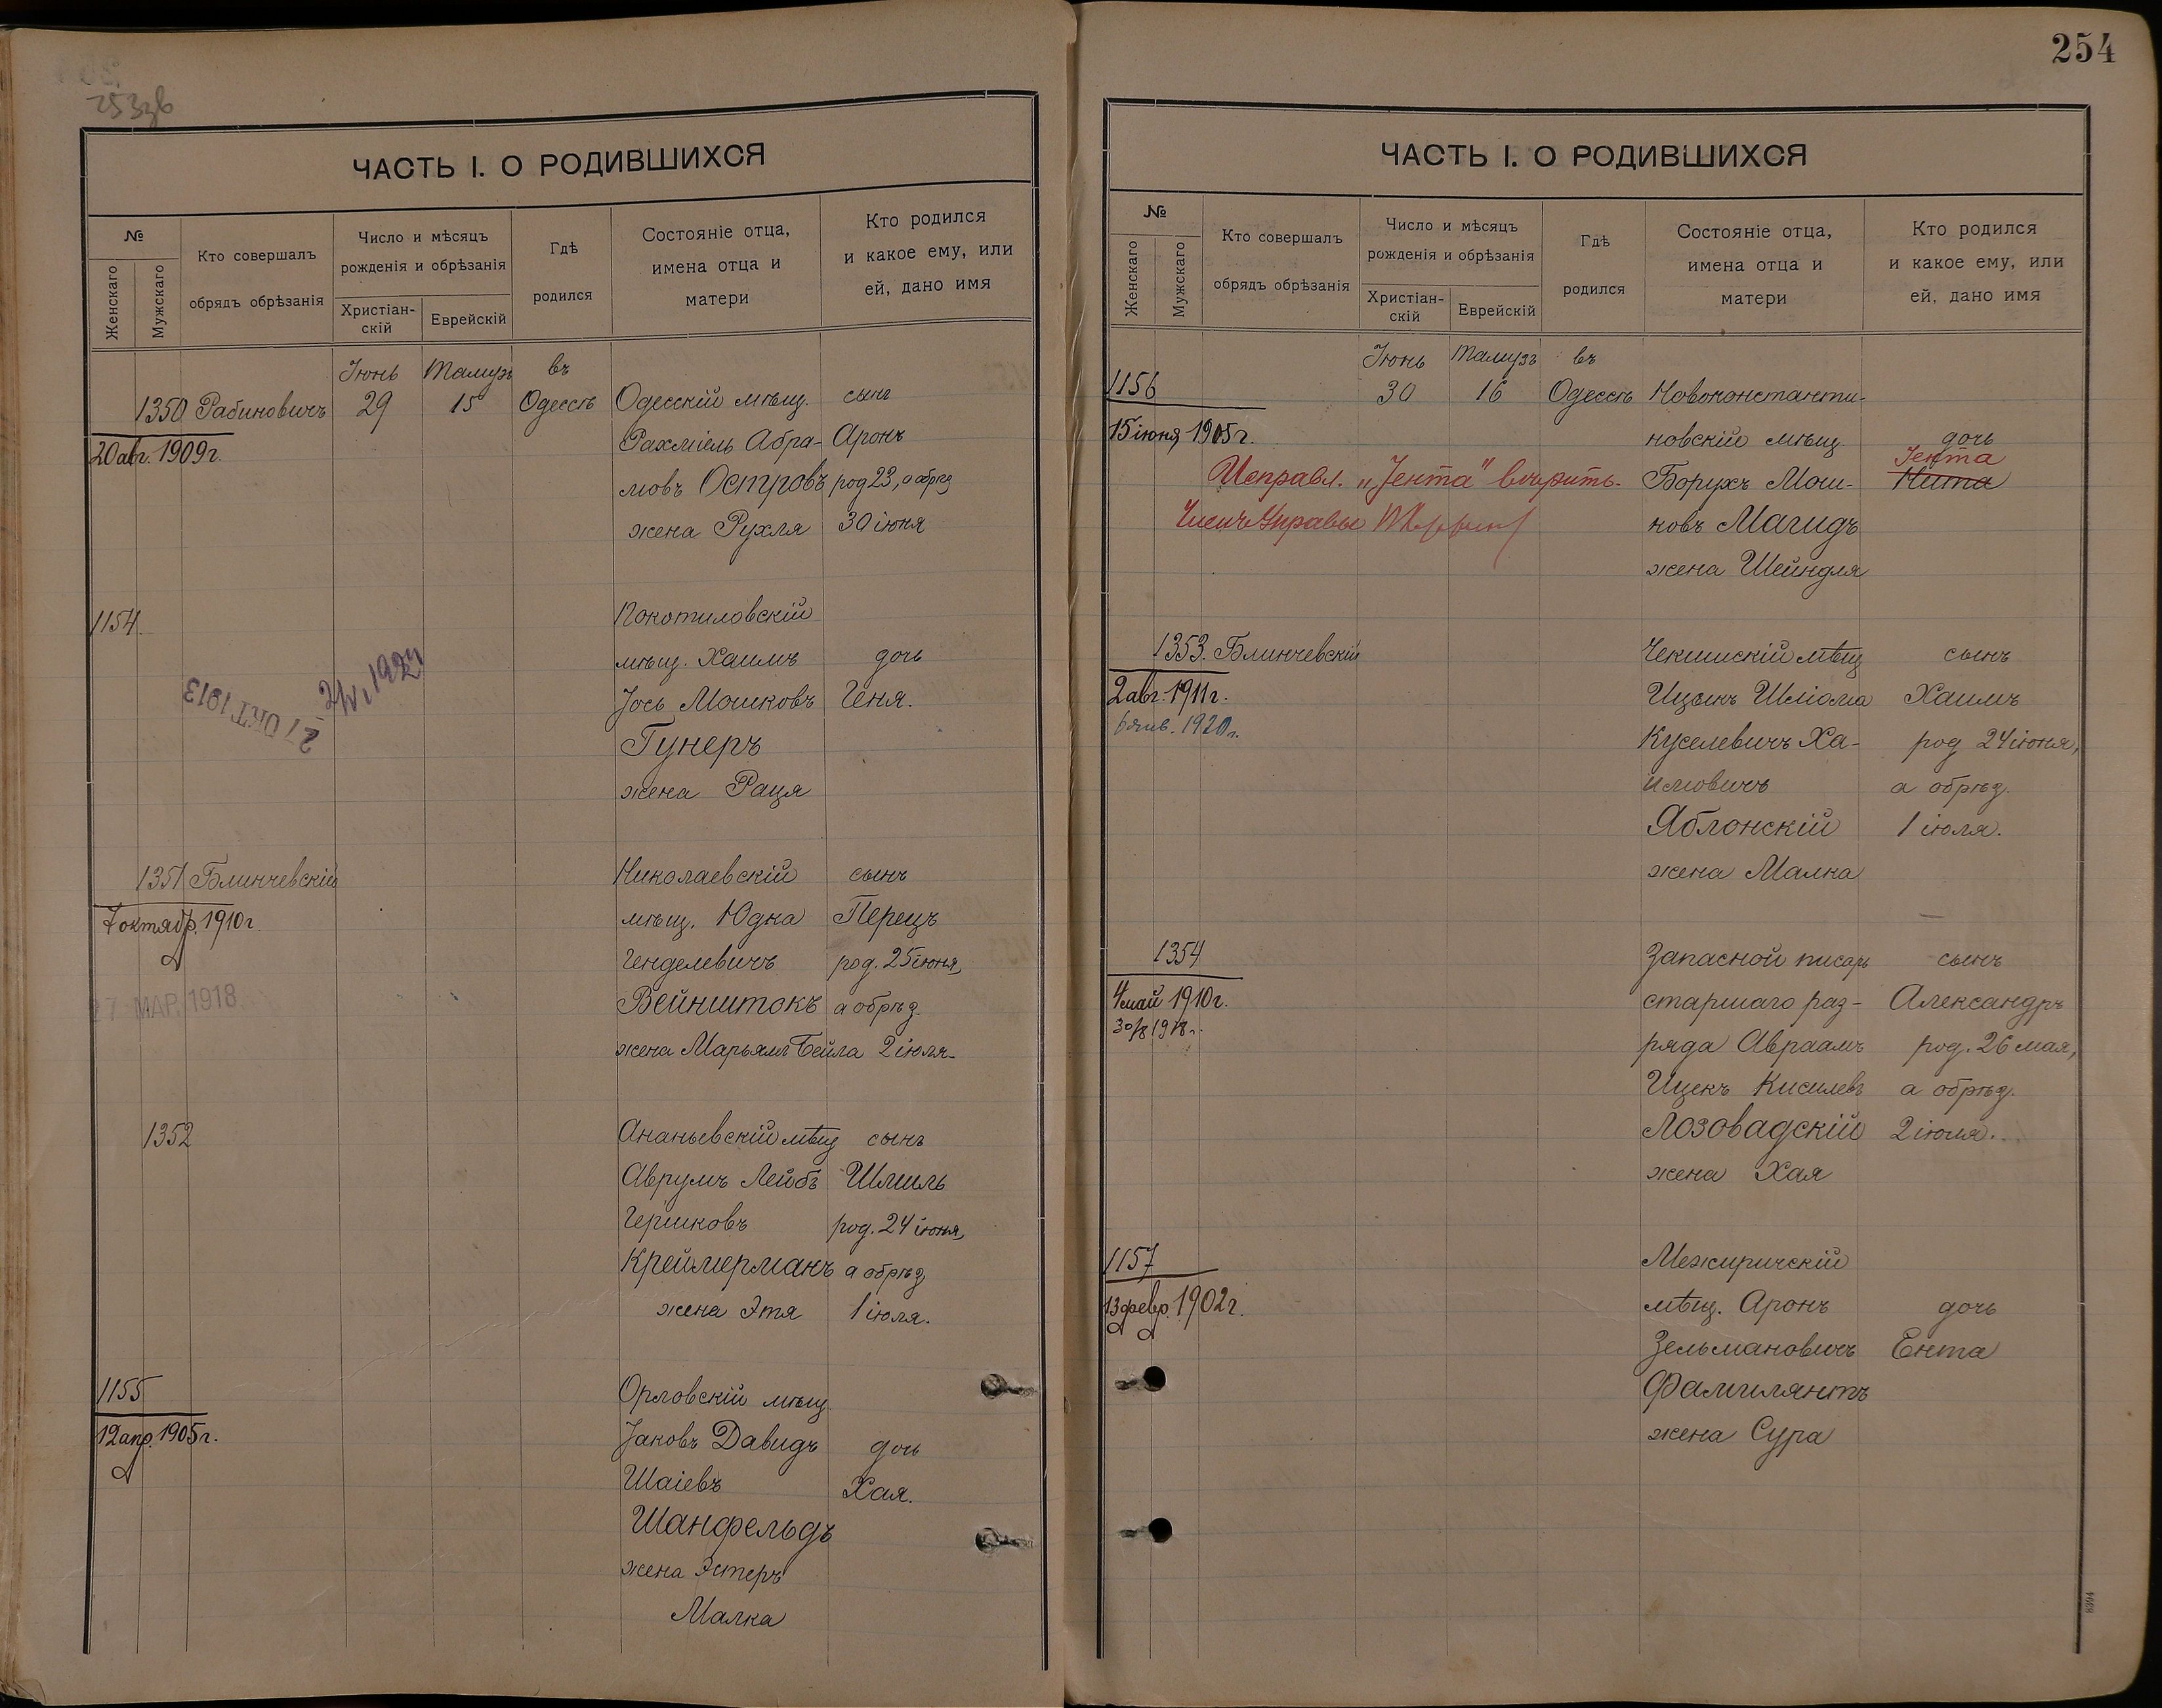 253зв
ЧАСТЬ I. О РОДИВШИХСЯ
№
Женскаго
Мужскаго
Кто совершалъ
обрядъ обрѣзанія
Число и мѣсяцъ
рожденія и обрѣзанія
Христіан-
скій
Еврейскій
Гдѣ
родился
Состояніе отца,
имена отца и
матери
Кто родился
и какое ему, или
ей, дано имя
Іюнь Тамузъ въ
1350 Рабиновичъ 29 15 Одессѣ Одесскій мѣщ. сынъ
20 авг. 1909 г.
Рахміель Абра- Аронъ
мовъ Островъ род 23, а обрѣз
жена Рухля 30 іюня
1154. Покотиловскій
мѣщ. Хаимъ дочь
Іось Мошковъ Геня.
Гунеръ
жена Раця
27 ОКТ 1913
1351 Блинчевскій Николаевскій сынъ
7 октябр. 1910 г.
мѣщ. Юдка Перецъ
Генделевичъ род. 25 іюня,
Вейнштокъ а обрѣз.
жена Марьямъ Бейла 2 іюля.
27 МАР. 1918
1352 Ананьевскій мѣщ сынъ
Аврумъ Лейбъ Шмиль
Гершковъ род. 24 іюня,
Креймерманъ а обрѣз
жена Этя 1 іюля.
1155 Орловскій мѣщ
12 апр. 1905 г.
Іаковъ Давидъ дочь
Шаіевъ Хая.
Шанфельдъ
жена Эстеръ
Малка
254
ЧАСТЬ I. О РОДИВШИХСЯ
№
Женскаго
Мужскаго
Кто совершалъ
обрядъ обрѣзанія
Число и мѣсяцъ
рожденія и обрѣзанія
Христіан-
скій
Еврейскій
Гдѣ
родился
Состояніе отца,
имена отца и
матери
Кто родился
и какое ему, или
ей, дано имя
Іюнь Тамузъ въ
1156 30 16 Одессѣ Новоконстанти-
15 іюня 1905 г.
новскій мѣщ дочь
Іента
Исправл. „Іента" вѣрить. Борухъ Мош- Нита
Членъ Управы
новъ Магидъ
жена Шейндля
1353. Блинчевскій Чекишскій мѣщ сынъ
2 авг. 1911 г.
6 янв. 1920 г.
Ицыкъ Шліома Хаимъ
Куселевичъ Ха- род 24 іюня,
имовичъ а обрѣз.
Яблонскій 1 іюля.
жена Малка
1354 Запасной писарь сынъ
4 май 1910 г.
30/8 1918 г.
старшаго раз- Александръ
ряда Авраамъ род. 26 мая,
Ицекъ Киселевъ а обрѣз.
Лозовадскій 2 іюля.
жена Хая
1157 Межиричскій
13 февр. 1902 г.
мѣщ. Аронъ дочь
Зельмановичъ Ента
Фамилянтъ
жена Сура
8394